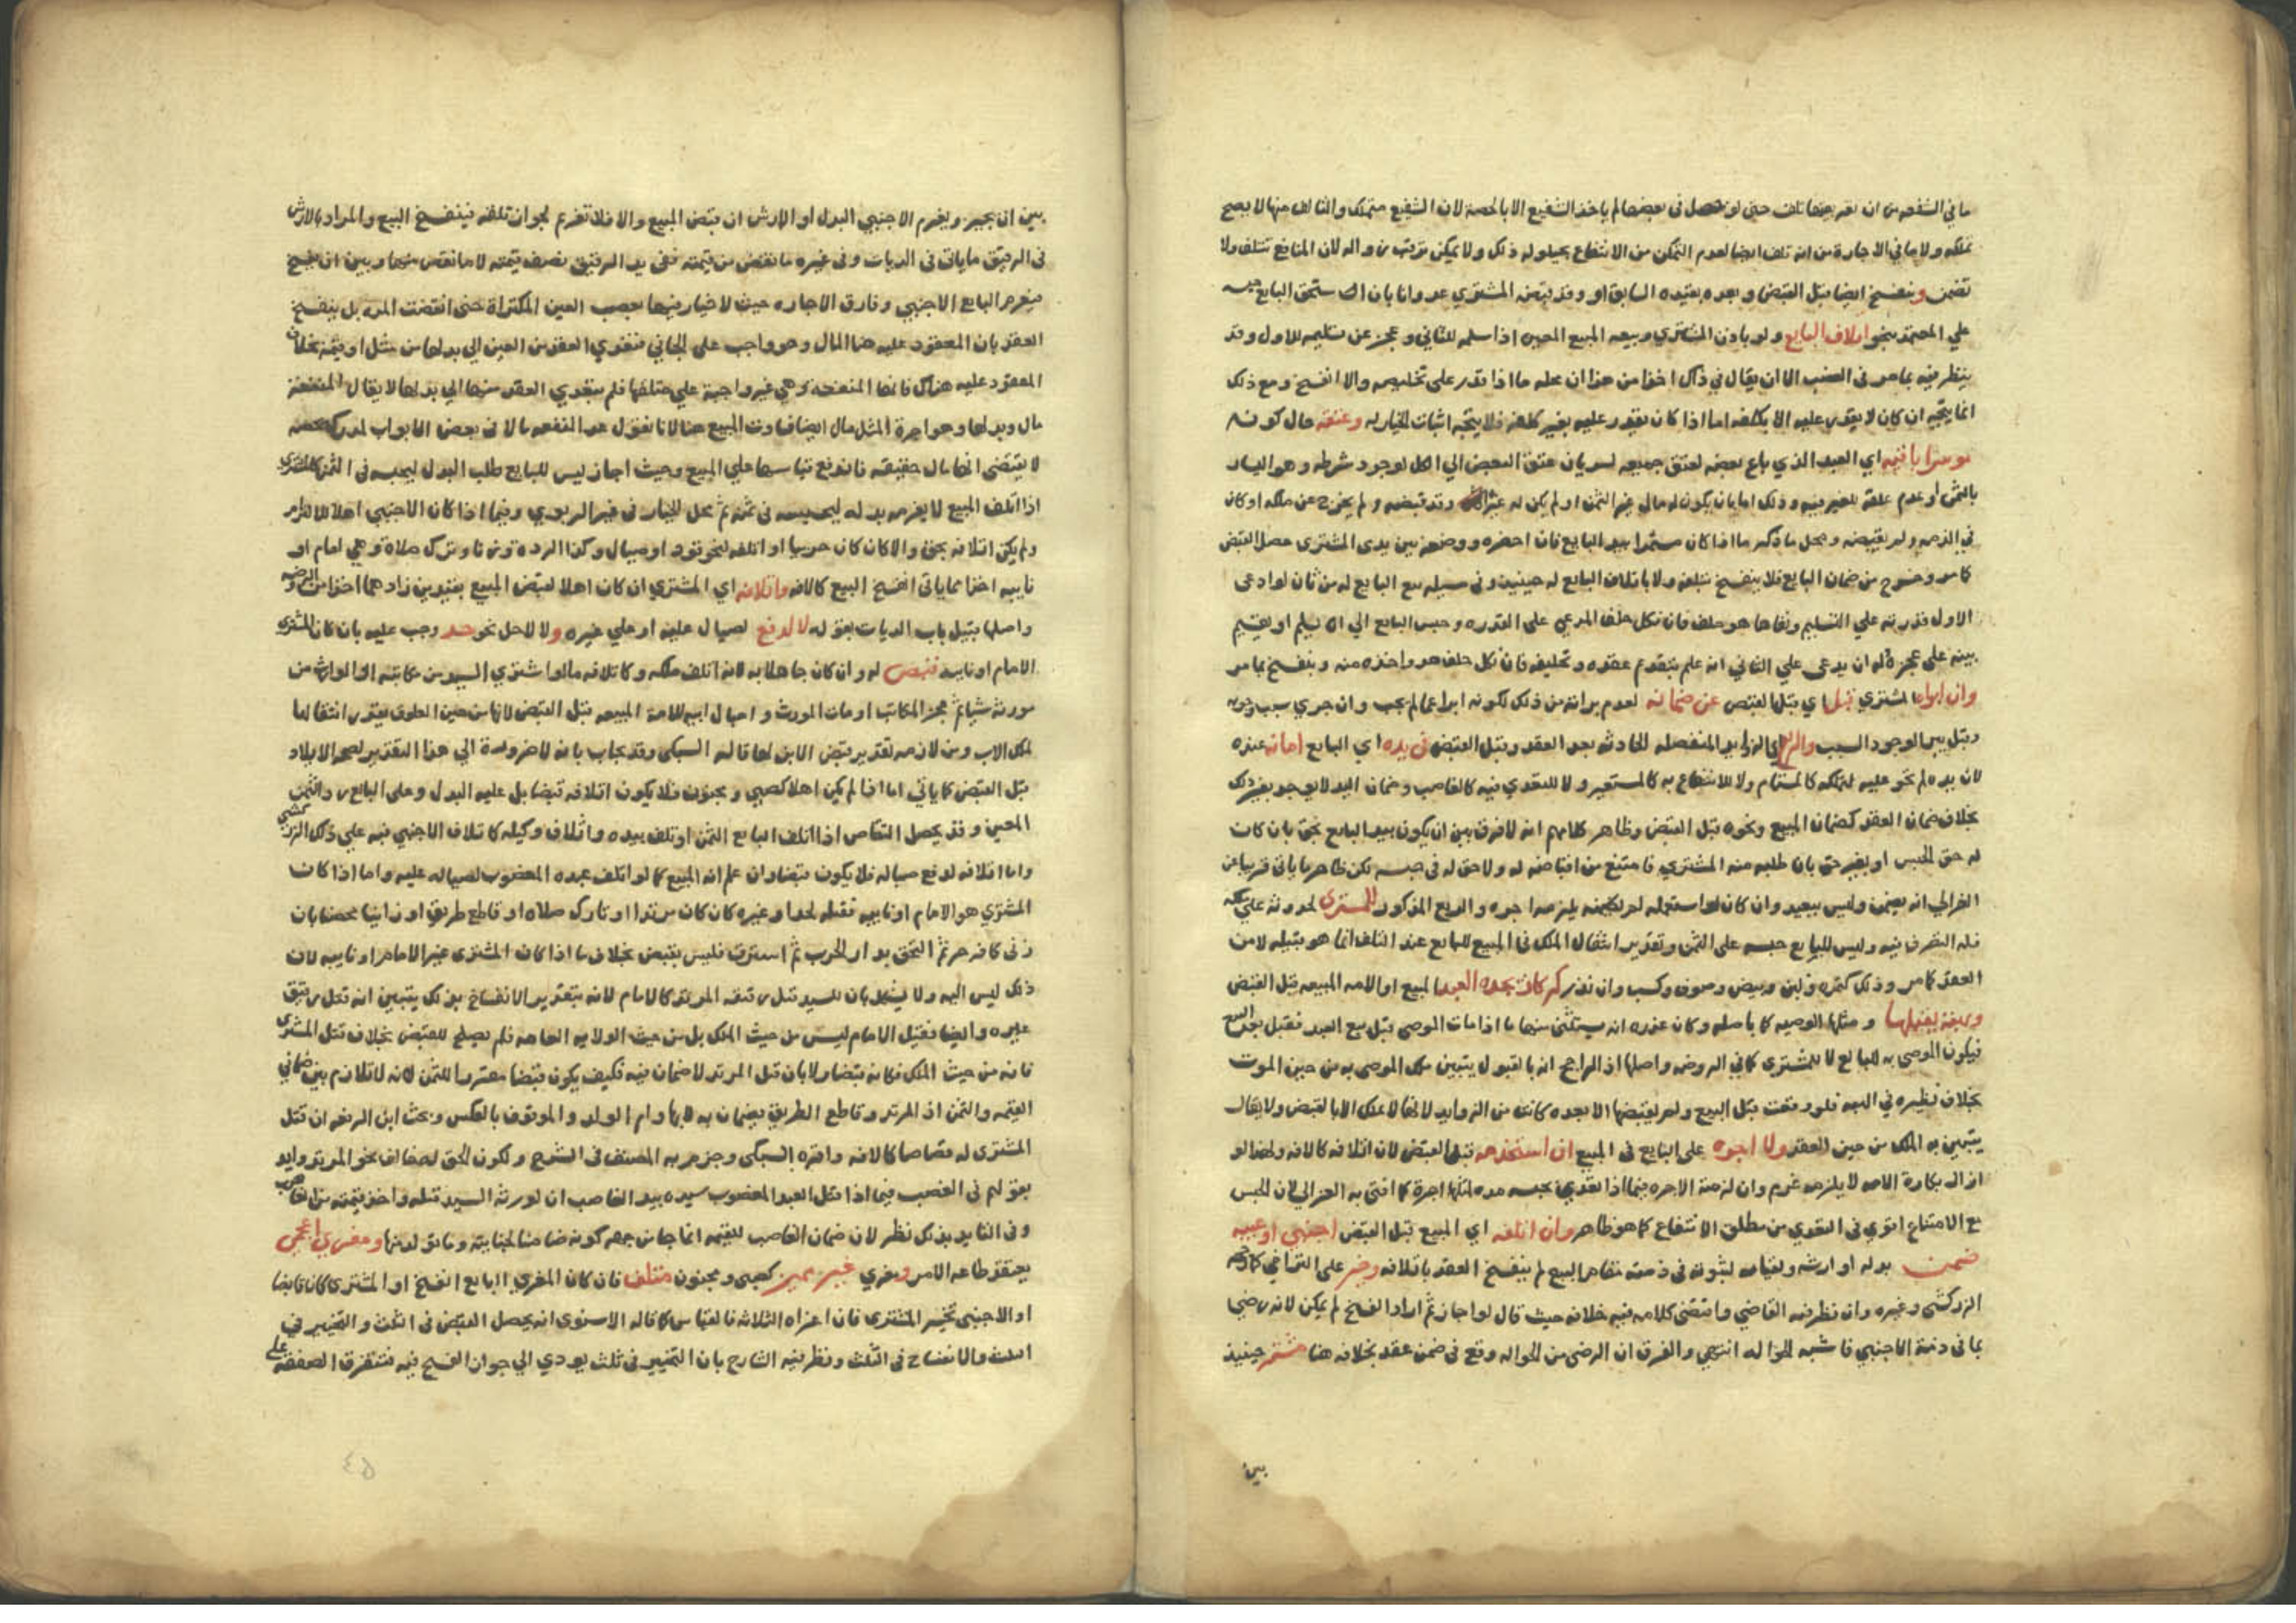 ما في الشفعه من ان تعـ بعضها تلف حتى لو حصل في بعضها لم ياخذ الشفيع الا بالحصة لان الشفيع متملك والتالف منها لا يصح
تملكه ولا ما في الاجارة من انه تلف ايضا لعدم التمكن من الانتفاع بحيلوله ذلك ولا يمكن ترتب زواله لان المنافع تتلف ولا
تضمن وينفسخ ايضا قبل القبض وبعده بقيده السابق او وقد قبضه المشتري عدوانا بان استحق البايع حبسه
على المعتمد بنحو اتلاف البايع ولو باذن المشتري وبيعه المبيع المعين اذا سلمه للثاني وعجز عن تسليمه للاول وقد
ينظر فيه بما مر في الغصب الا ان يقال في ذاك اخذا من هذا ان محله ما اذا قدر على تخليصه والا انفسخ ومع ذلك
انما يتجه ان كان لا يقدر عليه الا بكلفه اما اذا كان يقدر عليه بغير كلفه فلا يتجه اثبات الخيار له وعتقه حال كونه
موسرا باقيه اي العبد الذي باع بعضه لعتق جميعه لسريان عتق البعض الي الكل لوجود شرطه وهو اليسار
بالثمن او عدم علقة للغير فيه وذلك اما بان يكون له مال غير الثمن او لم يكن له غير وقد قبضه ولم يخرج عن ملكه او كان
في الذمه ولم يقبضه ومحل ما ذكر ما اذا كان مستمرا بيد البايع فان احضره ووضعه بين يدى المشترى حصل القبض
كما مر وخرج من ضمان البايع فلا ينفسخ بتلفه ولا باتلاف البايع له حينيذ وفى مسيله بيع البايع له من ثان لو ادعى
الاول قدرته علي التسليم ونفاها هو حلف فان نكل حلف المدعى على القدره وحبس البايع الي ان يسلم او يقيم
بينه على عجزه وله ان يدعى علي الثاني انه علم بتقدم عقده وتحليفه فان نكل حلف هو واخذه منه وينفسخ بما مر
وان ابراه المشتري قبل اي قبل القبض عن ضمانه لعدم براته من ذلك لكونه ابرا عما لم يجب وان جري سبب وجوبه
وقيل يبرا لوجود السبب والزوايد المنفصله الحادثه بعد العقد وقبل القبض في يده اي البايع امانه عنده
لان يده لم تحتو عليه لتملكه كالمستام ولا للانتفاع به كالمستعير ولا للتعدي فيه كالغاصب وضمان اليد لا يوجد بغير ذلك
بخلاف ضمان العقد كضمان المبيع ونحوه قبل القبض وظاهر كلامهم انه لا فرق بين ان يكون بيد البايع بحق بان كان
له حق الحبس او بغير حق بان طلبه منه المشتري فامتنع من اقباضه له ولا حق له في حبسه لكن ظاهر ما ياتى قريبا عن
الغزالي انه يضمن وليس ببعيد وان كان لو استعمله لم يلزمه اجره والريع المذكور للمشترى لحدوثه على ملكه
فله التصرف فيه وليس للبايع حبسه على الثمن وتقدير انتقال الملك في المبيع للبايع عند التلف انما هو بتبيله لا من
العقد كما مر وذلك كثمره ولبن وبيض وصوف وكسب وان نذر كركاز يجده العبد المبيع او الامه المبيعه قبل القبض
ووصيه يقبلها ومثلها الوصيه كما باصله وكان عذره انه يستثنى منها ما اذا مات الموصى قبل بيع العبد فقبل بعد البيع
فيكون الموصى به للبايع لا للمشترى كما في الروضه واصلها اذ الراجح انه بالقبول يتبين ملك الموصى به من حين الموت
بخلاف نظيره في الهبه فلو وقعت قبل البيع ولم يقبضها الا بعده كانت من الزوايد لانها لا تملك الا بالقبض ولا يقال
يتبين به الملك من حين العقد ولا اجره على البايع في المبيع ان استخدمه قبل القبض لان اتلافه كالافه ولهذا لو
ازال بكارة الامه لا يلزمه غرم وان لزمته الاجره فيما اذا تعدي بحبسه مده لمثلها اجرة كما افتى به الغزالي لان الحبس
مع الامتناع اقوي في التعدي من مطلق الانتفاع كما هو ظاهر وان اتلفه اي المبيع قبل القبض اجنبي او عيبه
ضمن بدله او ارشه ولقيامه لثبوته في ذمته مقام المبيع لم ينفسخ العقد باتلافه وخير على التراخي كما
الزركشى وغيره وان نظر فيه القاضي واقتضى كلامه فيه خلافه حيث قال لو اجاز ثم اراد الفسخ لم يمكن لانه رضي
بما فى ذمة الاجنبي فاشبه الحواله انتهي والفرق ان الرضى من الحواله وقع في ضمن عقد بخلافه هنا مشتر حينيذ
بين
بين ان يجيز ويغرم الاجنبي البدل او الارش ان قبض المبيع والا فلا تغرم لجواز تلفه فينفسخ البيع والمراد بالارش
في الرقيق ما ياتى فى الديات وفى غيره ما نقص من قيمته ففى يد الرقيق نصف قيمته لا ما نقص منها وبين ان يفسخ
فيغرم البايع الاجنبي وفارق الاجاره حيث لا خيار فيها بغصب العين المكتراة حتى انقضت المده بل ينفسخ
العقد بان المعقود عليه هنا المال وهو واجب على الجاني فتعدي العقد من العين الى بدلها من مثل او قيمة بخلاف
المعقود عليه هناك فانها المنفعه وهي غير واجبة علي متلفها فلم يتعدي العقد منها الي بدلها لا يقال المنفعة
مال وبدلها وهو اجرة المثل مال ايضا فساوت المبيع هنا لانا نقول عد المنفعه مالا فى بعض الابواب لمدرك يخصه
لا يقتضى انها مال حقيقه فاندفع قياسها علي المبيع وحيث اجاز ليس للبايع طلب البدل ليحبسه فى الثمن كالمشترى
اذا اتلف المبيع لا يغرمه بدله ليحبسه فى ثمنه ثم محل الخيار فى غير الربوي وفيما اذا كان الاجنبي اهلا للالتزام
ولم يكن اتلافه بحق والا كان كان حربيا او اتلفه لنحو قود او صيال وكذا الرده وزنا وترك صلاة وهي لامام او
نايبه اخذا مما ياتى انفسخ البيع كالافه واتلافه اي المشتري ان كان اهلا لقبض المبيع بقيدين زادهما اخذا من الروضه
واصلها قبيل باب الديات بقوله لا لدفع لصيال عليه او علي غيره ولا لاجل نحو حد وجب عليه بان كان المشترى
الامام او نايبه قبض له وان كان جاهلا به لانه اتلف ملكه وكاتلافه ما لو اشتري السيد من مكاتبه او الوارث من
مورثه شيا ثم عجز المكاتب او مات المورث واحبال ابيه للامة المبيعه قبل القبض لانها من حين العلوق يقدر انتقالها
لملك الاب ومن لازمه تقدير قبض الابن لها قاله السبكى وقد يجاب بانه لا ضرورة الي هذا التقدير لصحه الايلاد
قبل القبض كما ياتي اما اذا لم يكن اهلا كصبي ومجنون فلا يكون اتلافه قبضا بل عليه البدل وعلى البايع رد الثمن
المعين وقد يحصل التقاص اذا اتلف البايع الثمن او تلف بيده واتلاف وكيله كاتلاف الاجنبي نبه علي ذلك الزركشي
واما اتلافه لدفع صياله فلا يكون قبضا وان علم انه المبيع كما لو اتلف عبده المغصوب لصياله عليه واما اذا كان
المشتري هو الامام او نايبه فقتله لحد او غيره كان كان مرتدا او تارك صلاه او قاطع طريق او زانيا محصنا بان
زنى كافر حر ثم التحق بدار الحرب ثم استرق فليس بقبض بخلاف ما اذا كان المشترى غير الامام او نايبه لان
ذلك ليس اليه ولا يشكل بان للسيد قتل رقيقه المرتد كالامام لانه بتقدير الانفساخ بذلك يتبين انه قتل رقيق
غيره وايضا فقتل الامام ليس من حيث الملك بل من حيث الولايه العامه فلم يصلح للقبض بخلاف قتل المشترى
فانه من حيث الملك فكان قبضا ولا بان قتل المرتد لا ضمان فيه فكيف يكون قبضا مقررا للثمن لانه لا تلازم بين ضماني
القيمه والثمن اذ المرتد وقاطع الطريق يضمنان به لا بها وام الولد والموقوف بالعكس وبحث ابن الرفعه ان قتل
المشترى له قصاصا كالافه واقره السبكى وجزم به المصنف فى الشرح ولكون الحق له خالف نحو المرتد وايد
بقولهم فى الغصب فيما اذا قتل العبد المغصوب سيده بيد الغاصب ان لورثة السيد قتله واخذ قيمته من الغاصب
وفى التاييد بذلك نظر لان ضمان الغاصب للقيمه انما جا من جهه كونه ضامنا لجنايته وما تولد منها ومغري اعجمي
يعتقد طاعه الامر ومغري غير مميز كصبى ومجنون متلف فان كان المغري البايع انفسخ او المشترى كان قابضا
او الاجنبى تخير المشترى فان اغراه الثلاثه فالقياس كما قاله الاسنوى انه يحصل القبض فى الثلث والتخيير في
الثلث والانفساخ فى الثلث ونظر فيه الشارح بان التخيير فى ثلث يودي الي جواز الفسخ فيه فتتفرق الصفقه على
٤٥